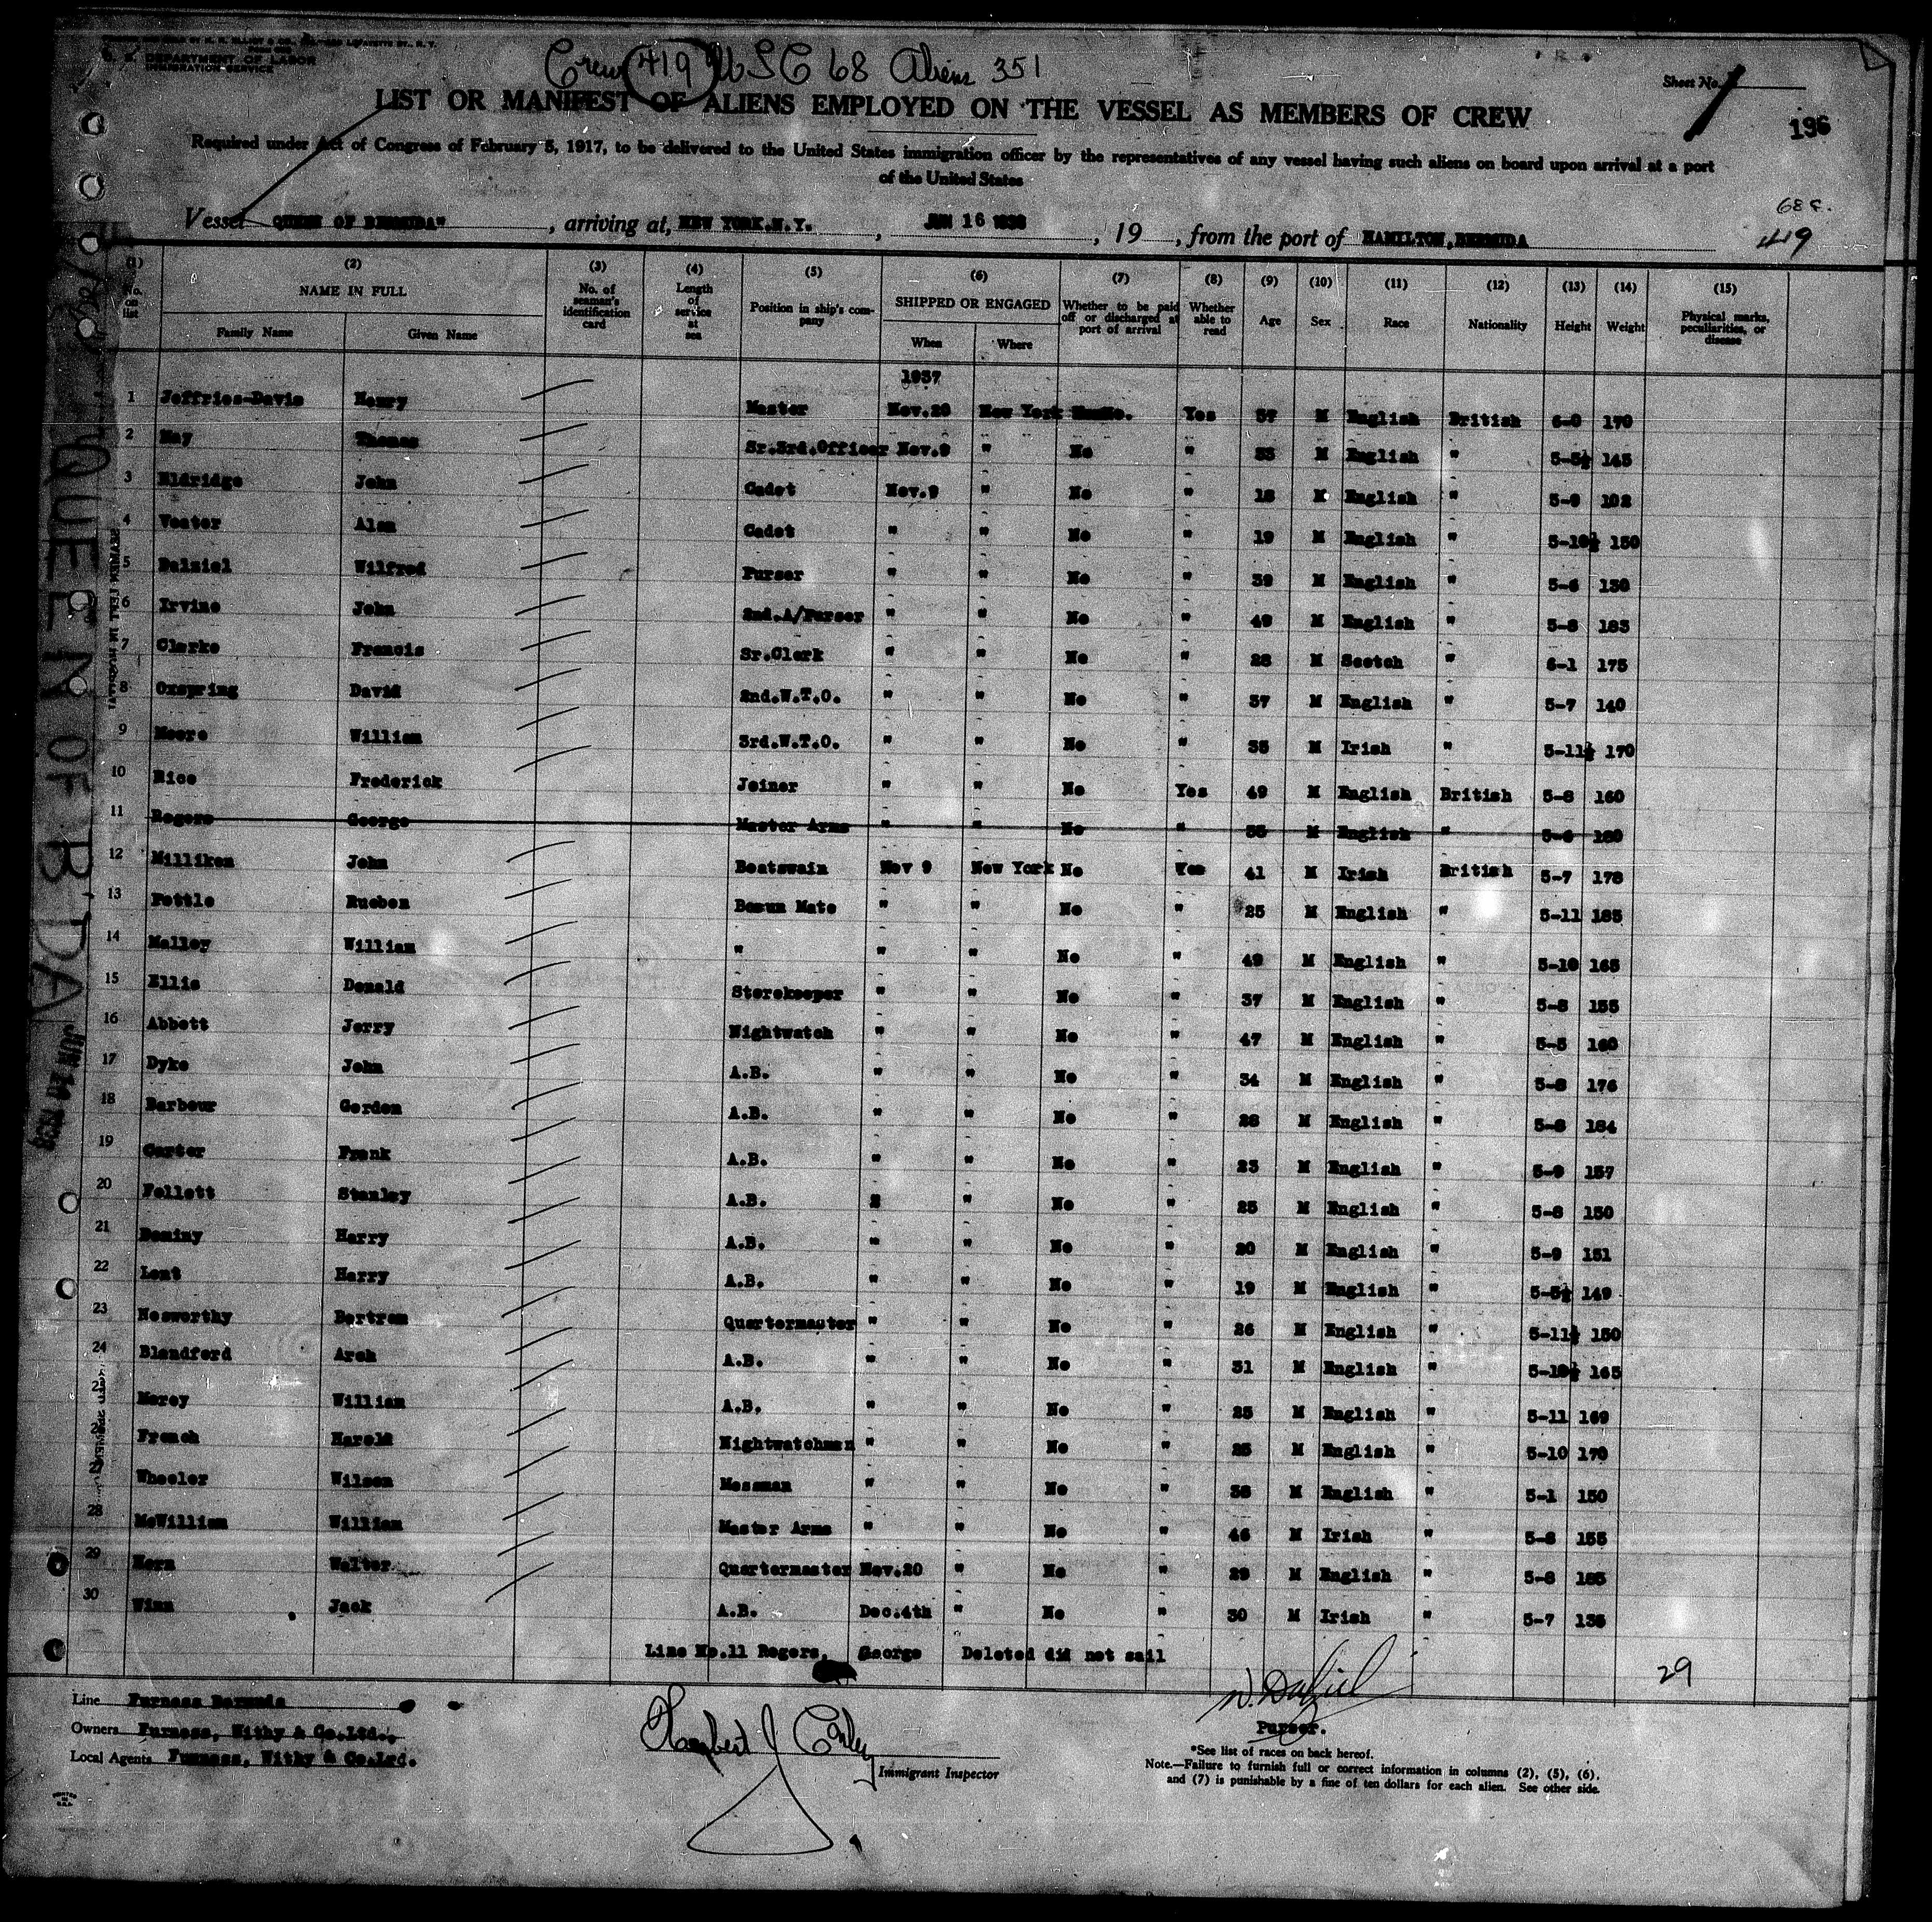 U. S. DEPARTMENT OF LABOR
IMMIGRATION SERVICE
Crew 419 USC 68 Aliens 351
Sheet No. 1
LIST OR MANIFEST OF ALIENS EMPLOYED ON THE VESSEL AS MEMBERS OF CREW
196
Required under Act of Congress of February 5, 1917, to be delivered to the United States immigration officer by the representatives of any vessel having such aliens on board upon arrival at a port
of the United States
68
419
Vessel QUEEN OF BERMUDA", arriving at, NEW YORK.N.Y., JUN 16 1938, 19, from the port of HAMILTON,BERMUDA
(1) (2) (3) (4) (5) (6) (7) (8) (9) (10) (11) (12) (13) (14) (15)
No. on list NAME IN FULL Family Name Given Name No. of seaman's identification card Length of service at sea Position in ship's company SHIPPED OR ENGAGED When Where Whether to be paid off or discharged at port of arrival Whether able to read Age Sex Race Nationality Height Weight Physical marks, peculiarities, or disease
1937
1 Jeffries-Davis Henry Master Nov.20 New York No. Yes 57 M English British 6-0 170
2 May Thomas Sr.3rd.Officer Nov.9 " No " 33 M English " 5-5½ 145
3 Eldridge John Cadet Nov.9 " No " 18 M English " 5-9
4 Veater Alan Cadet " " No " 19 M English " 5-10½ 150
5 Dalziel Wilfred Purser " " No " 39 M English " 5-6 130
6 Irvine John 2nd.A/Purser " " No " 49 M English " 5-8 183
7 Clarke Francis Sr.Clerk " " No " 28 M Scotch " 6-1 175
8 Oxspring David 2nd.W.T.O. " " No " 37 M English " 5-7 140
9 Moore William 3rd.W.T.O. " " No " 35 M Irish " 5-11½ 170
10 Rice Frederick Joiner " " No Yes 49 M English British 5-8 160
11 Rogers George Master Arms " " No " M English " 5-6
12 Milliken John Boatswain Nov 9 New York No Yes 41 M Irish British 5-7 178
13 Pottle Rueben Bosun Mate " " No " 25 M English " 5-11 185
14 Malley William " " " No " 49 M English " 5-10 165
15 Ellis Donald Storekeeper " " No " 37 M English " 5-8 155
16 Abbott Jerry Nightwatch " " No " 47 M English " 5-5 160
17 Dyke John A.B. " " No " 34 M English " 5-8 176
18 Barbour Gordon A.B. " " No " 28 M English " 5-8 184
19 Carter Frank A.B. " " No " 23 M English " 5-9 157
20 Follett Stanley A.B. " " No " 25 M English " 5-8 150
21 Dominy Harry A.B. " " No " 20 M English " 5-9 151
22 Lent Harry A.B. " " No " 19 M English " 5-5½ 149
23 Nosworthy Bertram Quartermaster " " No " 26 M English " 5-11½ 150
24 Blandford Arch A.B. " " No " 31 M English " 5-10½ 165
25 Morey William A.B. " " No " 25 M English " 5-11 169
26 French Harold Nightwatchman " " No " 25 M English " 5-10 170
27 Wheeler Wilson Messman " " No " 38 M English " 5-1 150
28 McWilliam William Master Arms " " No " 46 M Irish " 5-8 155
29 Horn Walter Quartermaster Nov.20 " No " 29 M English " 5-8 185
30 Winn Jack A.B. Dec.4th " No " 30 M Irish " 5-7 135
Line No.11 Rogers, George Deleted did not sail
29
Line Furness Bermuda
Owners Furness, Withy & Co.Ltd.,
Local Agents Furness, Withy & Co.Ltd.
Immigrant Inspector
W. Dalziel
Purser.
*See list of races on back hereof.
Note.—Failure to furnish full or correct information in columns (2), (5), (6), and (7) is punishable by a fine of ten dollars for each alien. See other side.
PRINTED IN U.S.A.
QUEEN OF B'DA